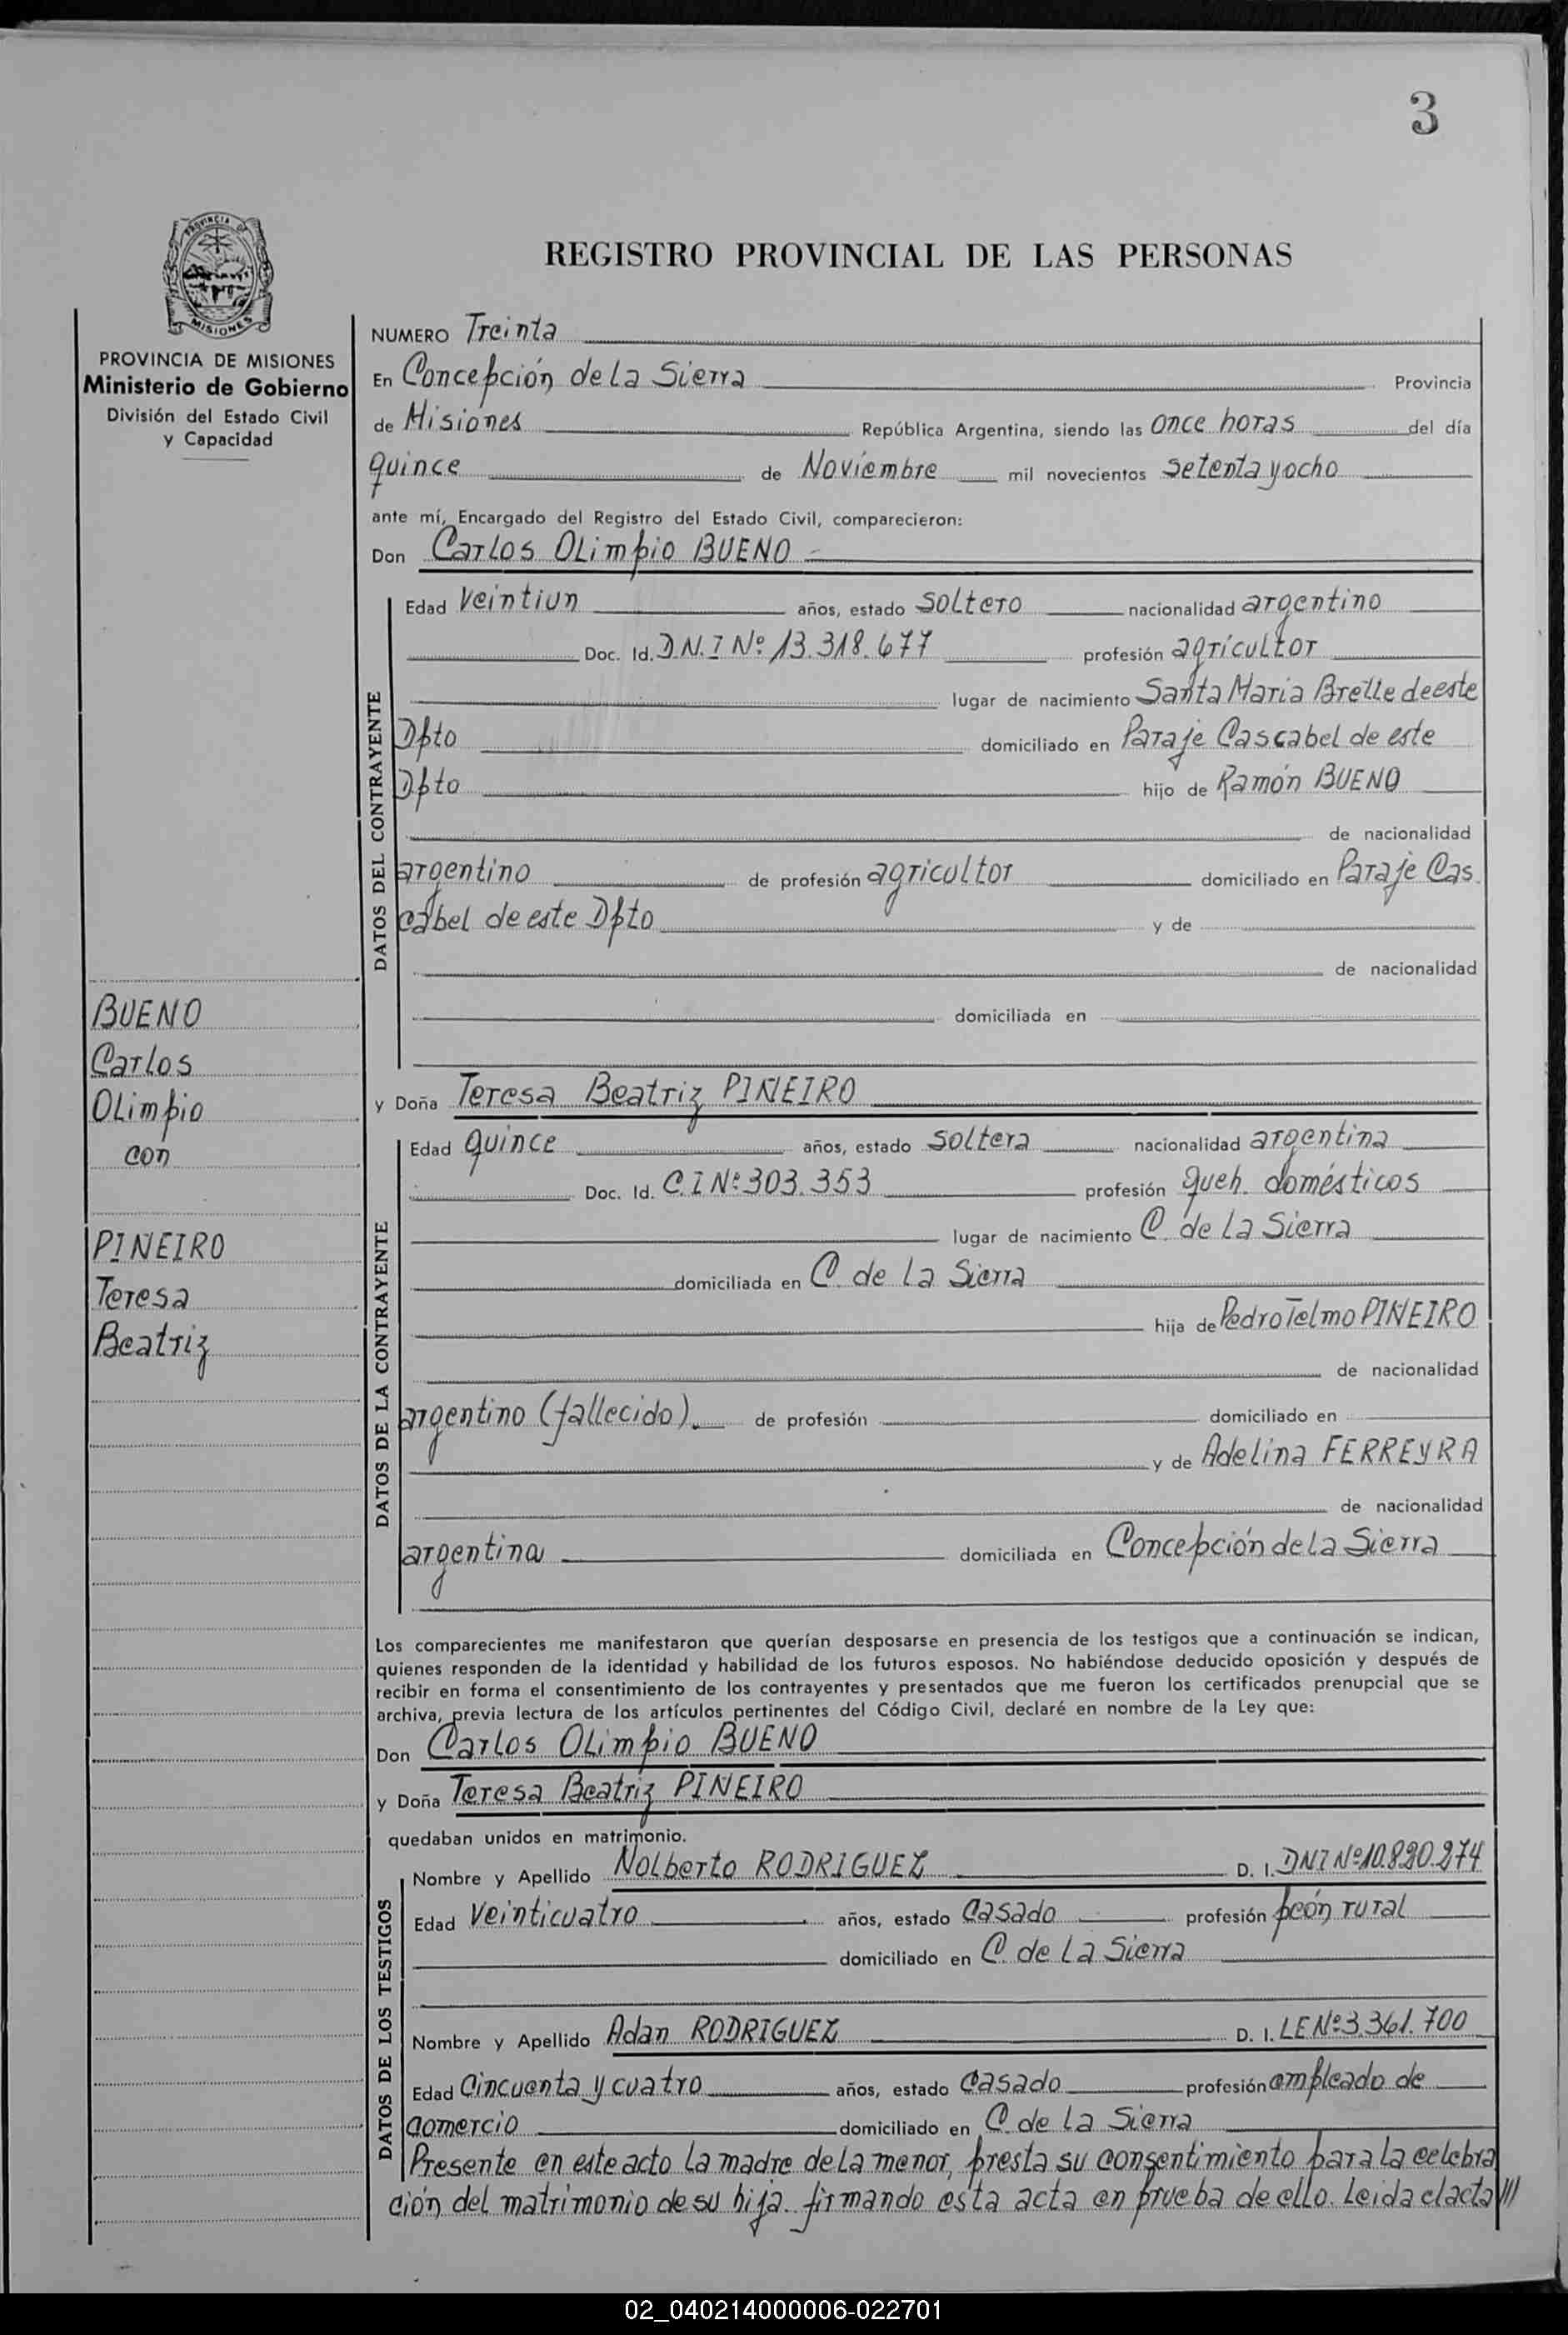 3
PROVINCIA DE
MISIONES
REGISTRO PROVINCIAL DE LAS PERSONAS
PROVINCIA DE MISIONES
Ministerio de Gobierno
División del Estado Civil
y Capacidad
NUMERO Treinta
En Concepción de La Sierra Provincia
de Misiones República Argentina, siendo las once horas del día
quince de Noviembre mil novecientos setenta y ocho
ante mí, Encargado del Registro del Estado Civil, comparecieron:
Don Carlos Olimpio BUENO
DATOS DEL CONTRAYENTE
Edad Veintiun años, estado soltero nacionalidad argentino
Doc. Id. D.N.I Nº 13.318.677 profesión agricultor
lugar de nacimiento Santa Maria de este
Dpto domiciliado en Paraje Cascabel de este
Dpto hijo de Ramón BUENO
de nacionalidad
argentino de profesión agricultor domiciliado en Paraje Cas
cabel de este Dpto y de
de nacionalidad
domiciliada en
BUENO
Carlos
Olimpio
con
PIÑEIRO
Teresa
Beatriz
y Doña Teresa Beatriz PIÑEIRO
DATOS DE LA CONTRAYENTE
Edad quince años, estado soltera nacionalidad argentina
Doc. Id. C.I Nº 303.353 profesión queh. domésticos
lugar de nacimiento C. de La Sierra
domiciliada en C. de La Sierra
hija de Pedro Telmo PIÑEIRO
de nacionalidad
argentino (fallecido). de profesión domiciliado en
y de Adelina FERREYRA
de nacionalidad
argentina domiciliada en Concepción de La Sierra
Los comparecientes me manifestaron que querían desposarse en presencia de los testigos que a continuación se indican,
quienes responden de la identidad y habilidad de los futuros esposos. No habiéndose deducido oposición y después de
recibir en forma el consentimiento de los contrayentes y presentados que me fueron los certificados prenupcial que se
archiva, previa lectura de los artículos pertinentes del Código Civil, declaré en nombre de la Ley que:
Don Carlos Olimpio BUENO
y Doña Teresa Beatriz PIÑEIRO
quedaban unidos en matrimonio.
DATOS DE LOS TESTIGOS
Nombre y Apellido Nolberto RODRIGUEZ D. I. DNI Nº
Edad Veinticuatro años, estado casado profesión peón rural
domiciliado en C. de La Sierra
Nombre y Apellido Adan RODRIGUEZ D. I. LE Nº 3.361.700
Edad Cincuenta y cuatro años, estado casado profesión empleado de
comercio domiciliado en C. de La Sierra
Presente en este acto la madre de la menor, presta su consentimiento para la celebra
ción del matrimonio de su hija. firmando esta acta en prueba de ello. Leida el acta ///
02_040214000006-022701